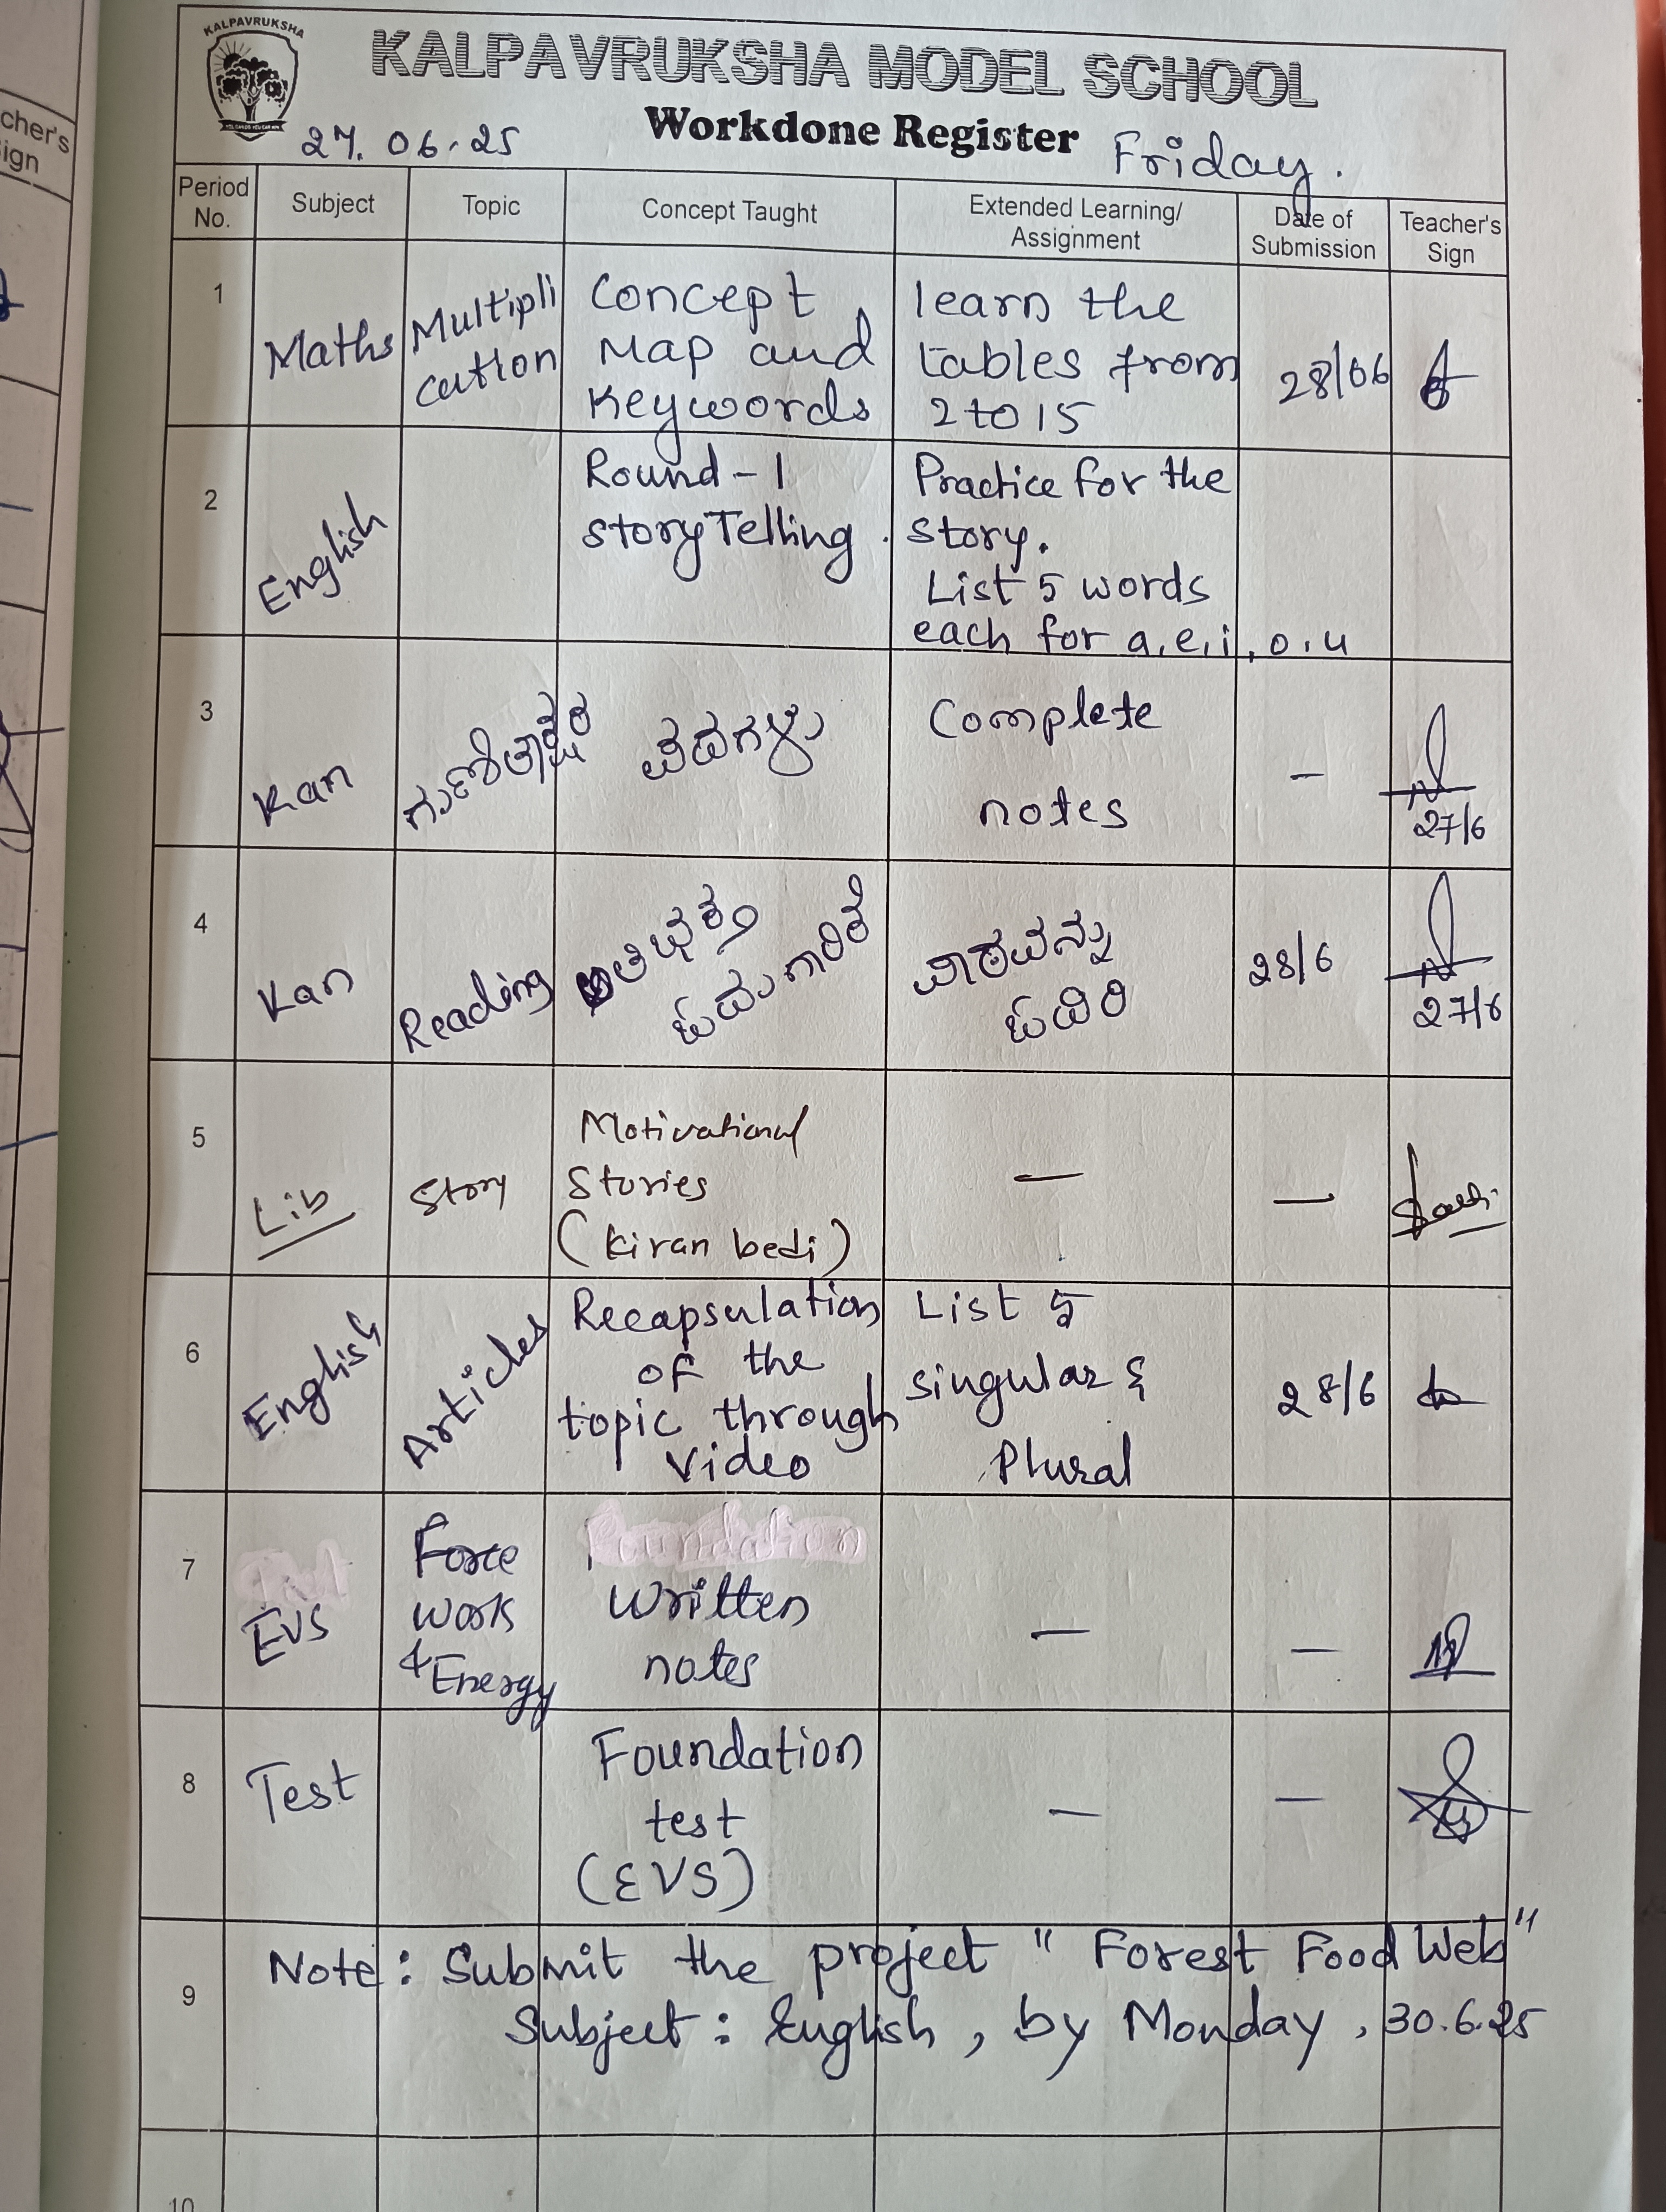 KALPAVRUKSHA
KALPAVRUKSHA MODEL SCHOOL
Workdone Register
27.06.25
Friday.
cher's
ign
Period No.
Subject
Topic
Concept Taught
Extended Learning/
Assignment
Date of
Submission
Teacher's
Sign
1
Maths
Multipli
cation
Concept
Map and
Keywords
learn the
tables from
2 to 15
28/06
2
English
Round - 1
story Telling.
Practice for the
story.
List 5 words
each for a, e, i, o, u
3
Kan
ಗುಣಿತಾಕ್ಷರ
ಪದಗಳು
Complete
notes
–
27/6
4
Kan
Reading
ಓದುಗಾರಿಕೆ
ಪಾಠವನ್ನು
ಓದಿರಿ
28/6
27/6
5
Lib
Story
Motivational
Stories
(Kiran bedi)
—
—
6
English
Articles
Recapsulation
of the
topic through
Video
List 5
singular &
Plural
28/6
7
EVS
Force
Work
& Energy
Foundation
Written
notes
—
—
8
Test
Foundation
test
(EVS)
—
—
9
Note: Submit the project "Forest Food Web"
Subject: English, by Monday, 30.6.25
10